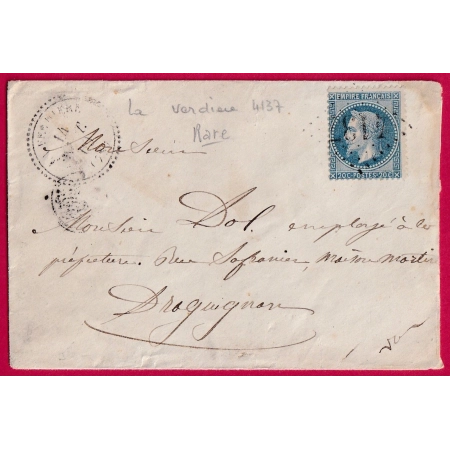 La Verdiere 4137.
Rare
EMPIRE FRANÇAIS
20C POSTES 20C
Monsieur
Monsieur Dol. employé à la
préfecture. Rue Safranier, maison Martin
Draguignan